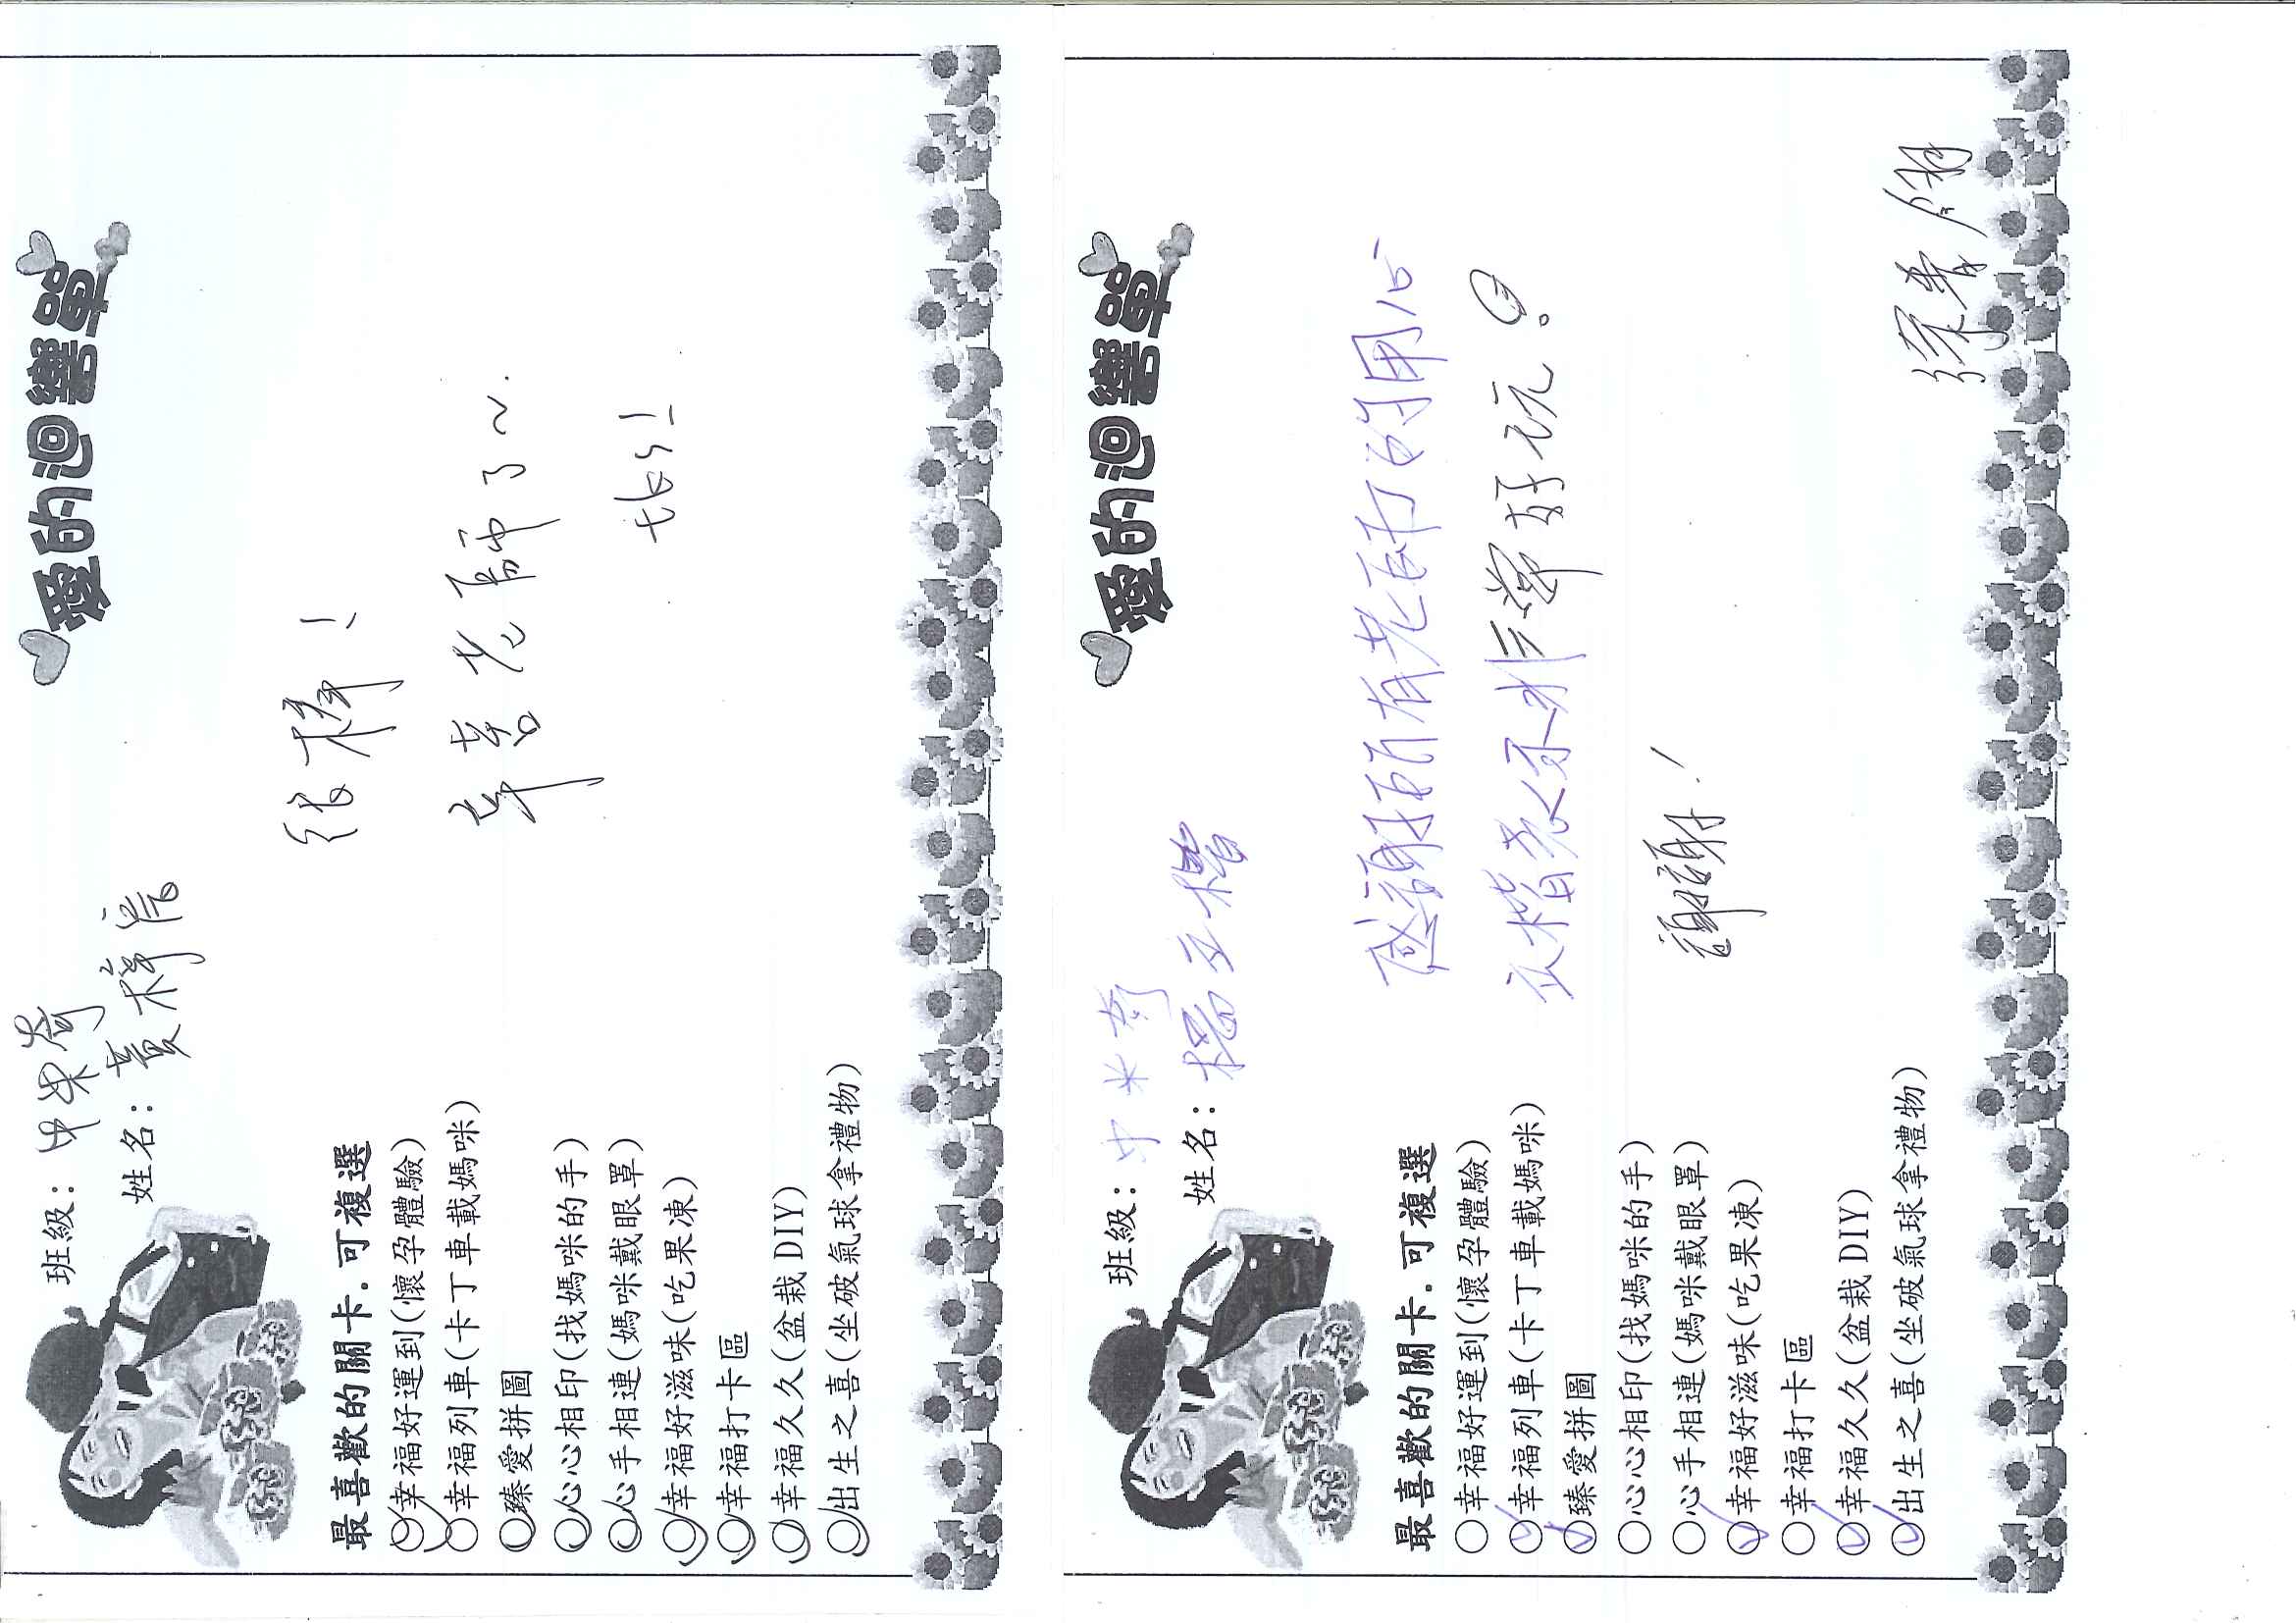 愛的迴響單
班級：中米奇
姓名：黃
最喜歡的關卡．可複選
○幸福好運到(懷孕體驗)
○幸福列車(卡丁車載媽咪)
○臻愛拼圖
○心心相印(找媽咪的手)
○心手相連(媽咪戴眼罩)
○幸福好滋味(吃果凍)
○幸福打卡區
○幸福久久(盆栽 DIY)
○出生之喜(坐破氣球拿禮物)
很棒！
辛苦老師了~
愛的迴響單
班級：中米奇
姓名：楊
最喜歡的關卡．可複選
○幸福好運到(懷孕體驗)
○幸福列車(卡丁車載媽咪)
○臻愛拼圖
○心心相印(找媽咪的手)
○心手相連(媽咪戴眼罩)
○幸福好滋味(吃果凍)
○幸福打卡區
○幸福久久(盆栽 DIY)
○出生之喜(坐破氣球拿禮物)
感謝所有老師的用心
好玩。
謝謝！